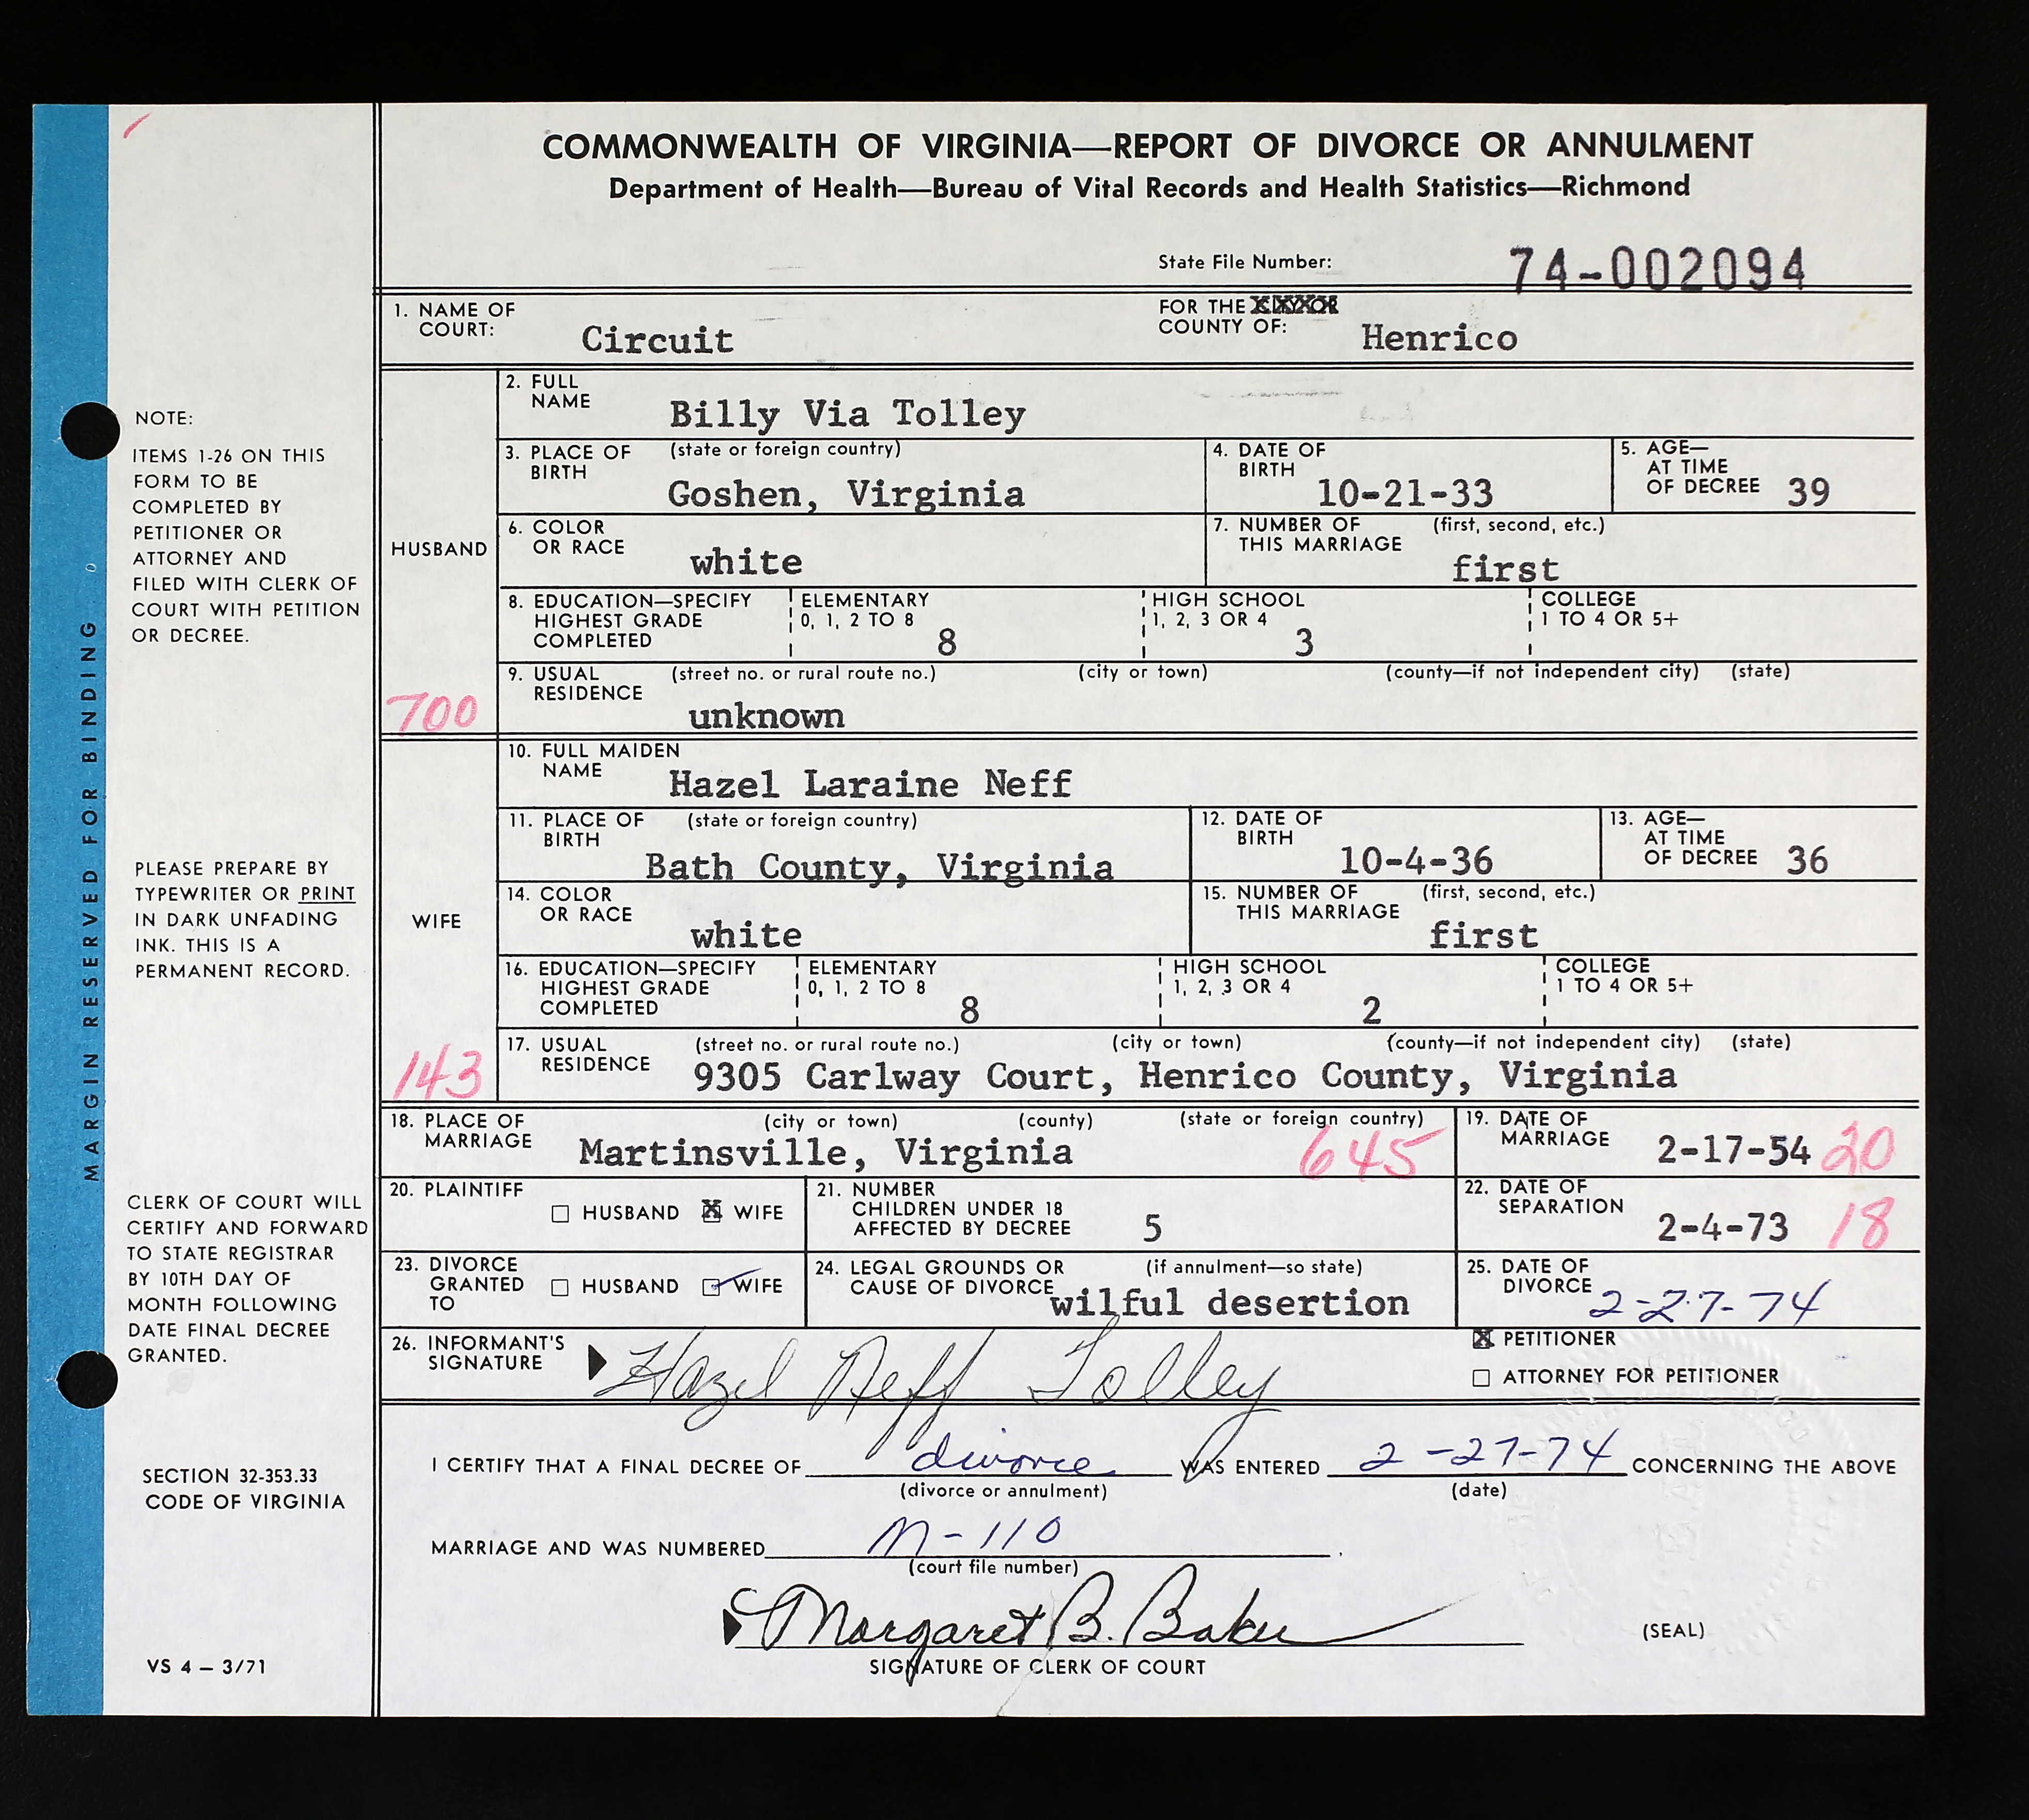 COMMONWEALTH OF VIRGINIA—REPORT OF DIVORCE OR ANNULMENT
Department of Health—Bureau of Vital Records and Health Statistics—Richmond
State File Number: 74-002094
1. NAME OF COURT: Circuit
FOR THE CITY OR COUNTY OF: Henrico
HUSBAND
700
2. FULL NAME Billy Via Tolley
3. PLACE OF BIRTH (state or foreign country) Goshen, Virginia
4. DATE OF BIRTH 10-21-33
5. AGE—AT TIME OF DECREE 39
6. COLOR OR RACE white
7. NUMBER OF THIS MARRIAGE (first, second, etc.) first
8. EDUCATION—SPECIFY HIGHEST GRADE COMPLETED
ELEMENTARY 0, 1, 2 TO 8 8
HIGH SCHOOL 1, 2, 3 OR 4 3
COLLEGE 1 TO 4 OR 5+
9. USUAL RESIDENCE (street no. or rural route no.) (city or town) (county—if not independent city) (state)
unknown
WIFE
143
10. FULL MAIDEN NAME Hazel Laraine Neff
11. PLACE OF BIRTH (state or foreign country) Bath County, Virginia
12. DATE OF BIRTH 10-4-36
13. AGE—AT TIME OF DECREE 36
14. COLOR OR RACE white
15. NUMBER OF THIS MARRIAGE (first, second, etc.) first
16. EDUCATION—SPECIFY HIGHEST GRADE COMPLETED
ELEMENTARY 0, 1, 2 TO 8 8
HIGH SCHOOL 1, 2, 3 OR 4 2
COLLEGE 1 TO 4 OR 5+
17. USUAL RESIDENCE (street no. or rural route no.) (city or town) (county—if not independent city) (state)
9305 Carlway Court, Henrico County, Virginia
18. PLACE OF MARRIAGE (city or town) (county) (state or foreign country)
Martinsville, Virginia 645
19. DATE OF MARRIAGE 2-17-54 20
20. PLAINTIFF HUSBAND X WIFE
21. NUMBER CHILDREN UNDER 18 AFFECTED BY DECREE 5
22. DATE OF SEPARATION 2-4-73 18
23. DIVORCE GRANTED TO HUSBAND WIFE
24. LEGAL GROUNDS OR CAUSE OF DIVORCE (if annulment—so state) wilful desertion
25. DATE OF DIVORCE 2-27-74
26. INFORMANT'S SIGNATURE Hazel Neff Tolley
X PETITIONER
ATTORNEY FOR PETITIONER
I CERTIFY THAT A FINAL DECREE OF divorce WAS ENTERED 2-27-74 CONCERNING THE ABOVE
(divorce or annulment) (date)
MARRIAGE AND WAS NUMBERED M-110.
(court file number)
Margaret B. Baker
SIGNATURE OF CLERK OF COURT
(SEAL)
MARGIN RESERVED FOR BINDING
NOTE:
ITEMS 1-26 ON THIS
FORM TO BE
COMPLETED BY
PETITIONER OR
ATTORNEY AND
FILED WITH CLERK OF
COURT WITH PETITION
OR DECREE.
PLEASE PREPARE BY
TYPEWRITER OR PRINT
IN DARK UNFADING
INK. THIS IS A
PERMANENT RECORD.
CLERK OF COURT WILL
CERTIFY AND FORWARD
TO STATE REGISTRAR
BY 10TH DAY OF
MONTH FOLLOWING
DATE FINAL DECREE
GRANTED.
SECTION 32-353.33
CODE OF VIRGINIA
VS 4 – 3/71